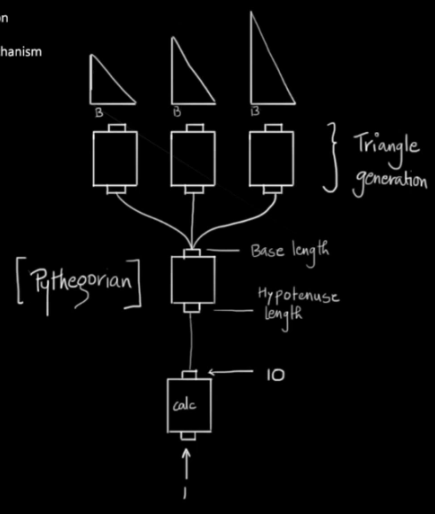 on
hanism
B
B
B
Triangle
generation
Base length
[Pythegorian]
Hypotenuse
length
10
calc
1